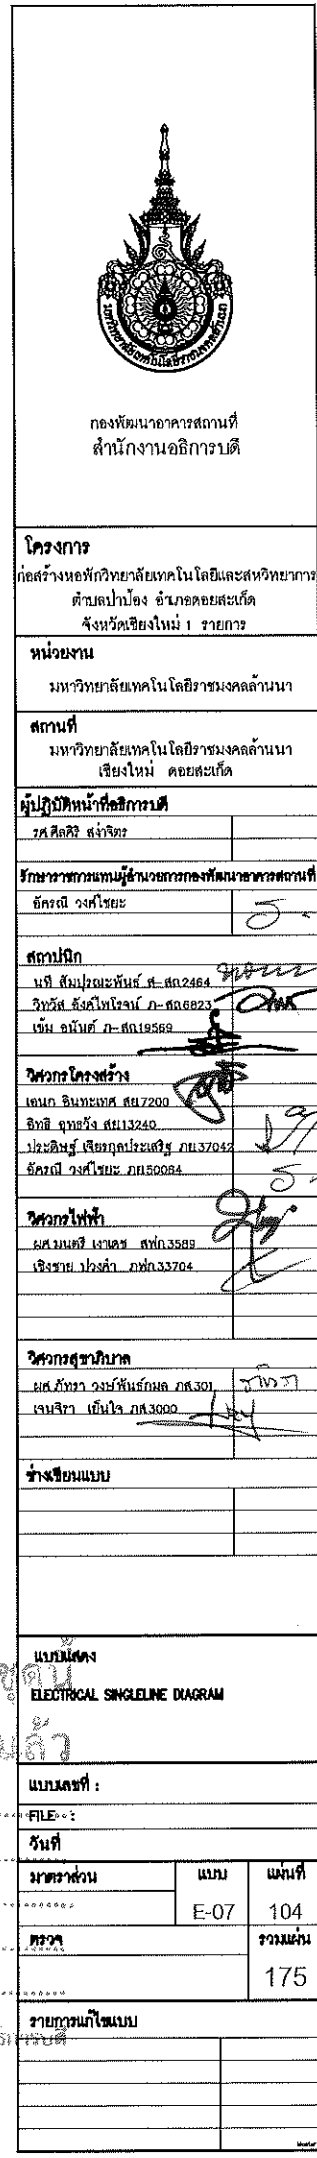 มหาวิทยาลัยเทคโนโลยีราชมงคลล้านนา
กองพัฒนาอาคารสถานที่
สำนักงานอธิการบดี
โครงการ
ก่อสร้างหอพักวิทยาลัยเทคโนโลยีและสหวิทยาการ
ตำบลป่าป้อง อำเภอดอยสะเก็ด
จังหวัดเชียงใหม่ 1 รายการ
หน่วยงาน
มหาวิทยาลัยเทคโนโลยีราชมงคลล้านนา
สถานที่
มหาวิทยาลัยเทคโนโลยีราชมงคลล้านนา
เชียงใหม่ ดอยสะเก็ด
ผู้ปฏิบัติหน้าที่อธิการบดี
รศ.ศีลศิริ สง่าจิตร
รักษาราชการแทนผู้อำนวยการกองพัฒนาอาคารสถานที่
อัครณี วงศ์ไชยะ
สถาปนิก
นที สัมปุรณะพันธ์ ส-สถ2464
วิทวัส ภ-สถ6823
เข้ม อนันต์ ภ-สถ19569
วิศวกรโครงสร้าง
เอนก อินทะเทศ สย7200
อิทธิ สย13240
ประดิษฐ์ เจียรกุลประเสริฐ ภย37042
อัครณี วงศ์ไชยะ ภย50084
วิศวกรไฟฟ้า
ผศ.มนตรี เงาเดช สฟก3589
เชิงชาย ปวงคำ ภฟก33704
วิศวกรสุขาภิบาล
ผศ.ภัทรา วงษ์พันธ์กมล ภส.301
เจนจิรา เย็นใจ ภส.3000
ช่างเขียนแบบ
แบบแสดง
ELECTRICAL SINGLELINE DIAGRAM
แบบเลขที่ :
FILE :
วันที่
มาตราส่วน แบบ แผ่นที่
E-07 104
ตรวจ รวมแผ่น
175
รายการแก้ไขแบบ